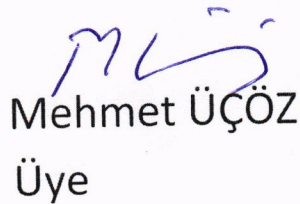 Mehmet ÜÇÖZ
Üye